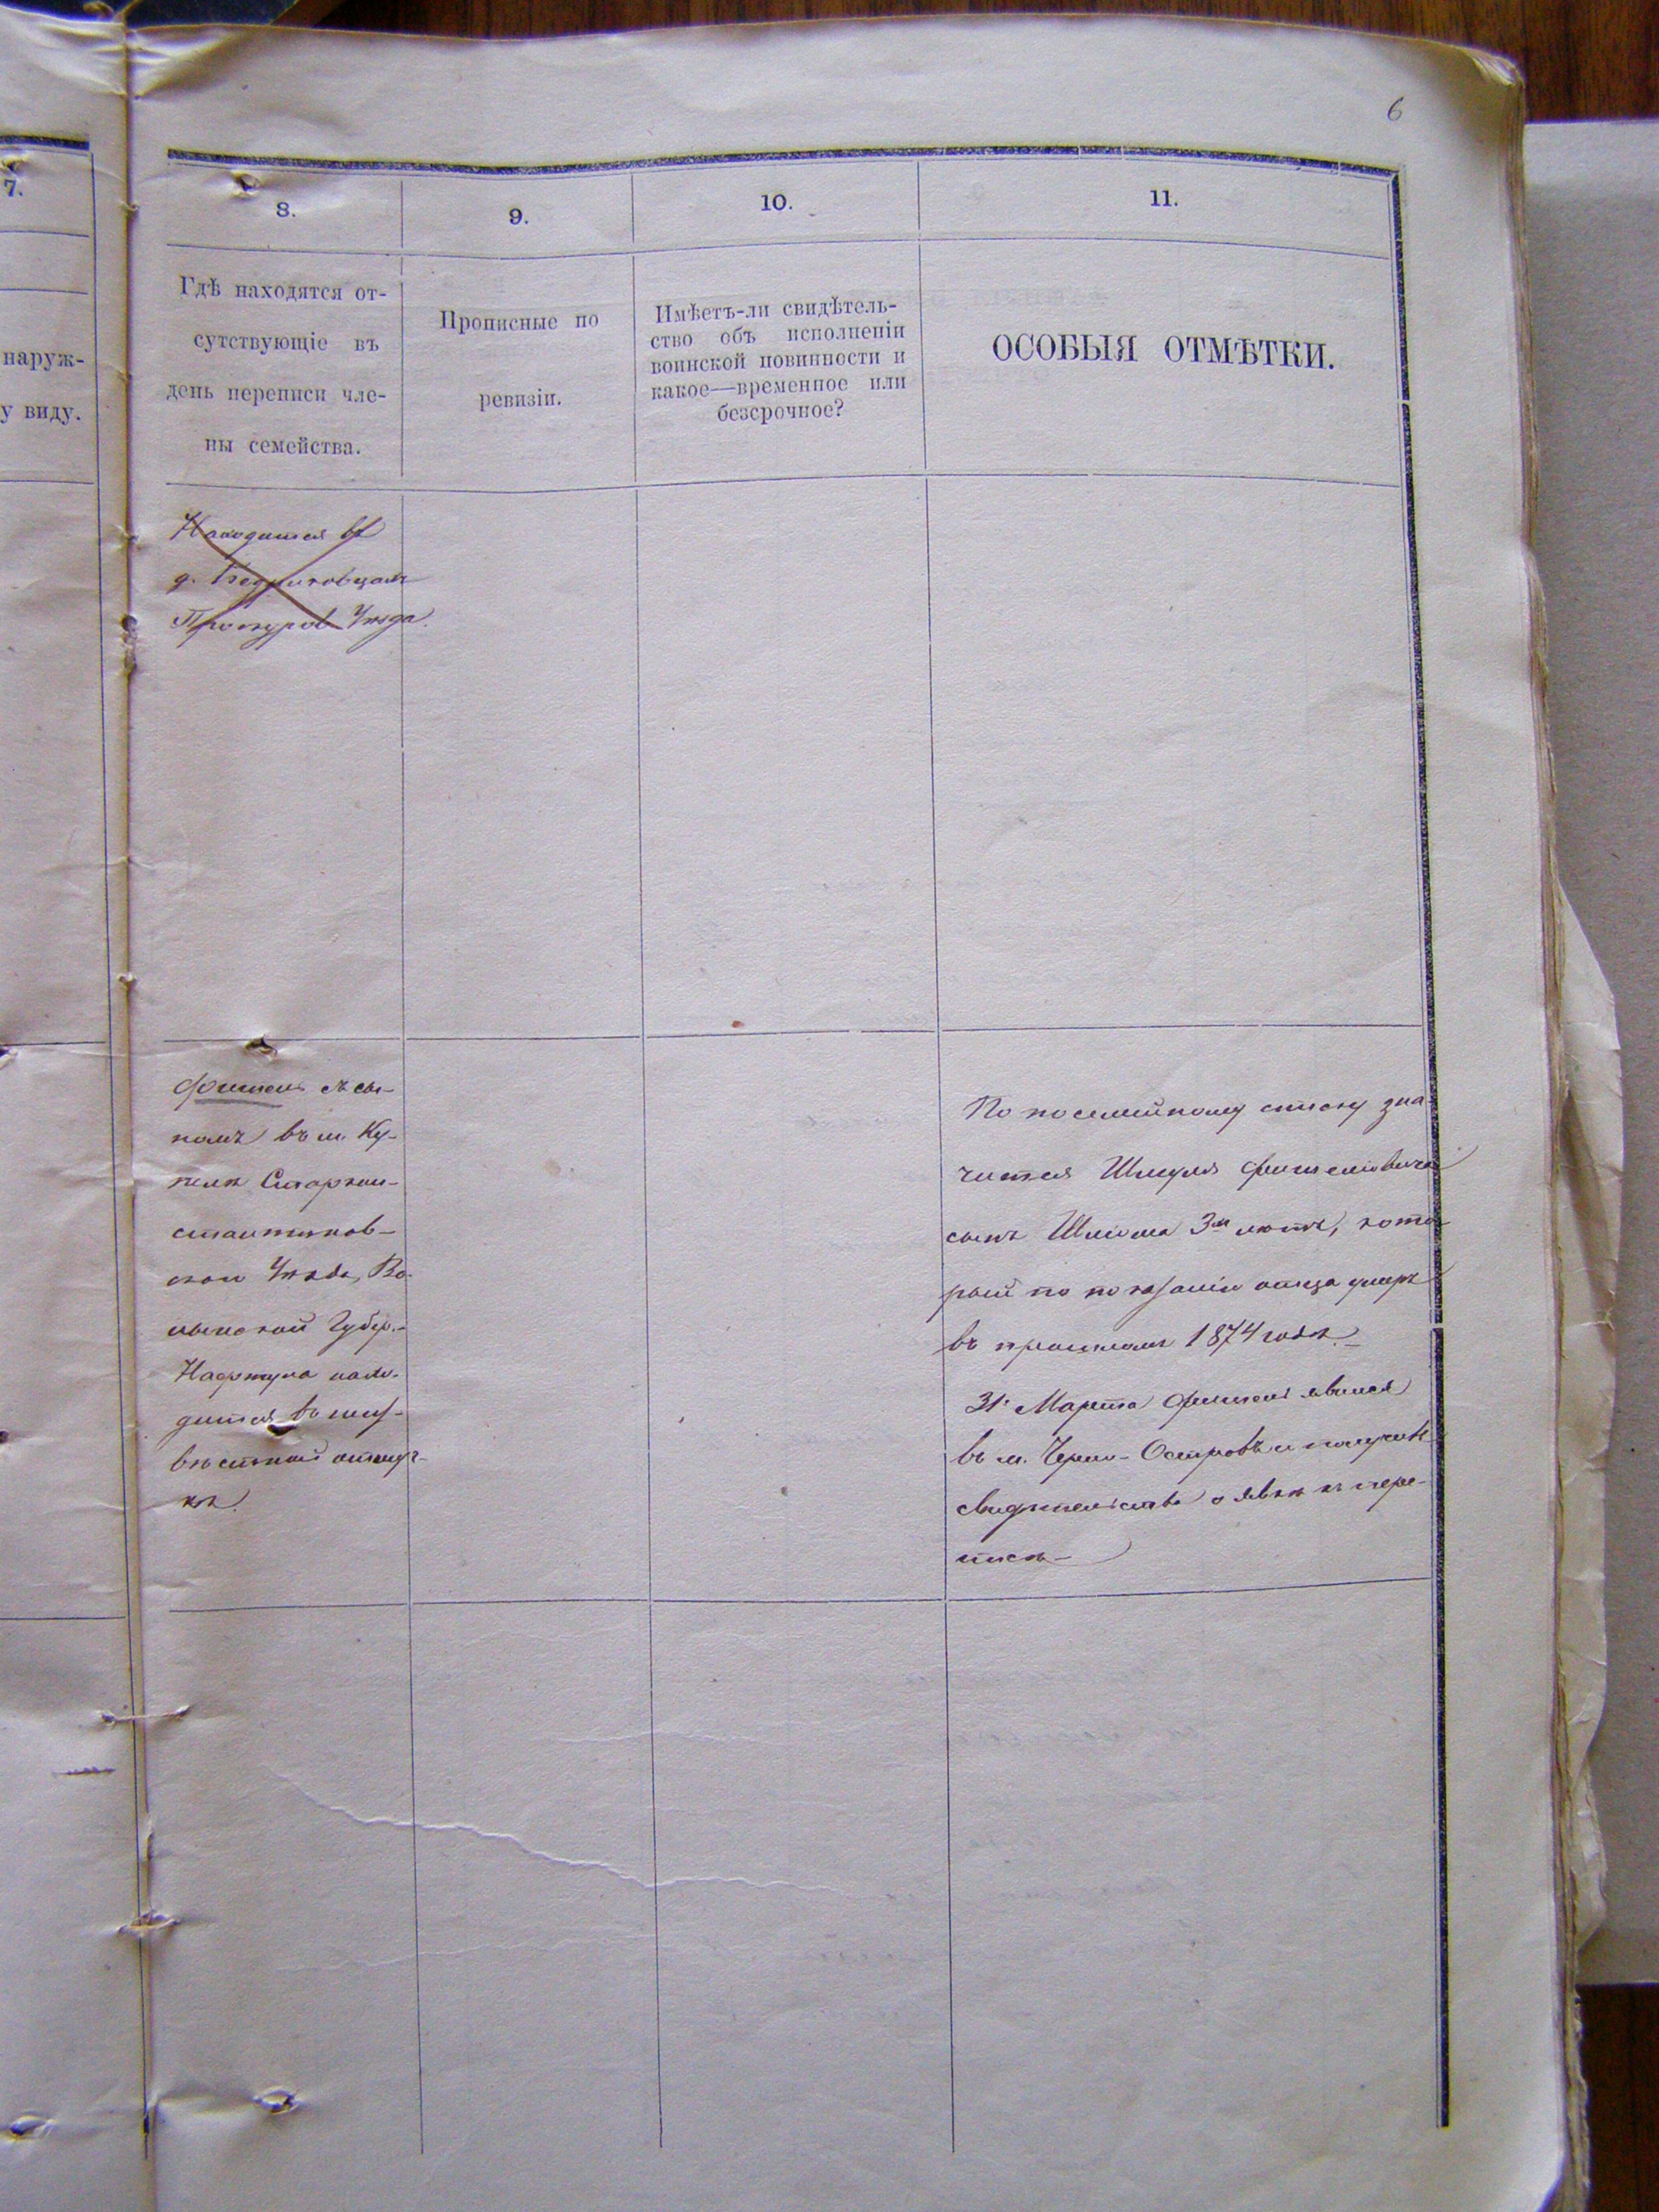 6
7.
наруж-
у виду.
8.
9.
10.
11.
Гдѣ находятся от-
сутствующіе въ
день переписи чле-
ны семейства.
Прописные по
ревизіи.
Имѣетъ-ли свидѣтель-
ство объ исполненіи
воинской повинности и
какое—временное или
безсрочное?
ОСОБЫЯ ОТМѢТКИ.
Находится въ
д.
Проскуров Уѣзда.
Фишель съ сы-
номъ въ м. Ку-
пелѣ Старкон-
стантинов-
ском Уѣзда, Во-
лынской Губер.-
Нафтула нахо-
дится въ неиз-
вѣстной отлуч-
кѣ.
По посемейному списку зна-
чится Шмуля Фишелiовича
сынъ Шлiома 3м лѣтъ, кото-
рый по показанію отца умеръ
въ прошломъ 1874 годѣ.-
31. Марта Фишель явился
въ м. Черно-Островъ и получилъ
свидѣтельство о явкѣ къ пере-
писи-